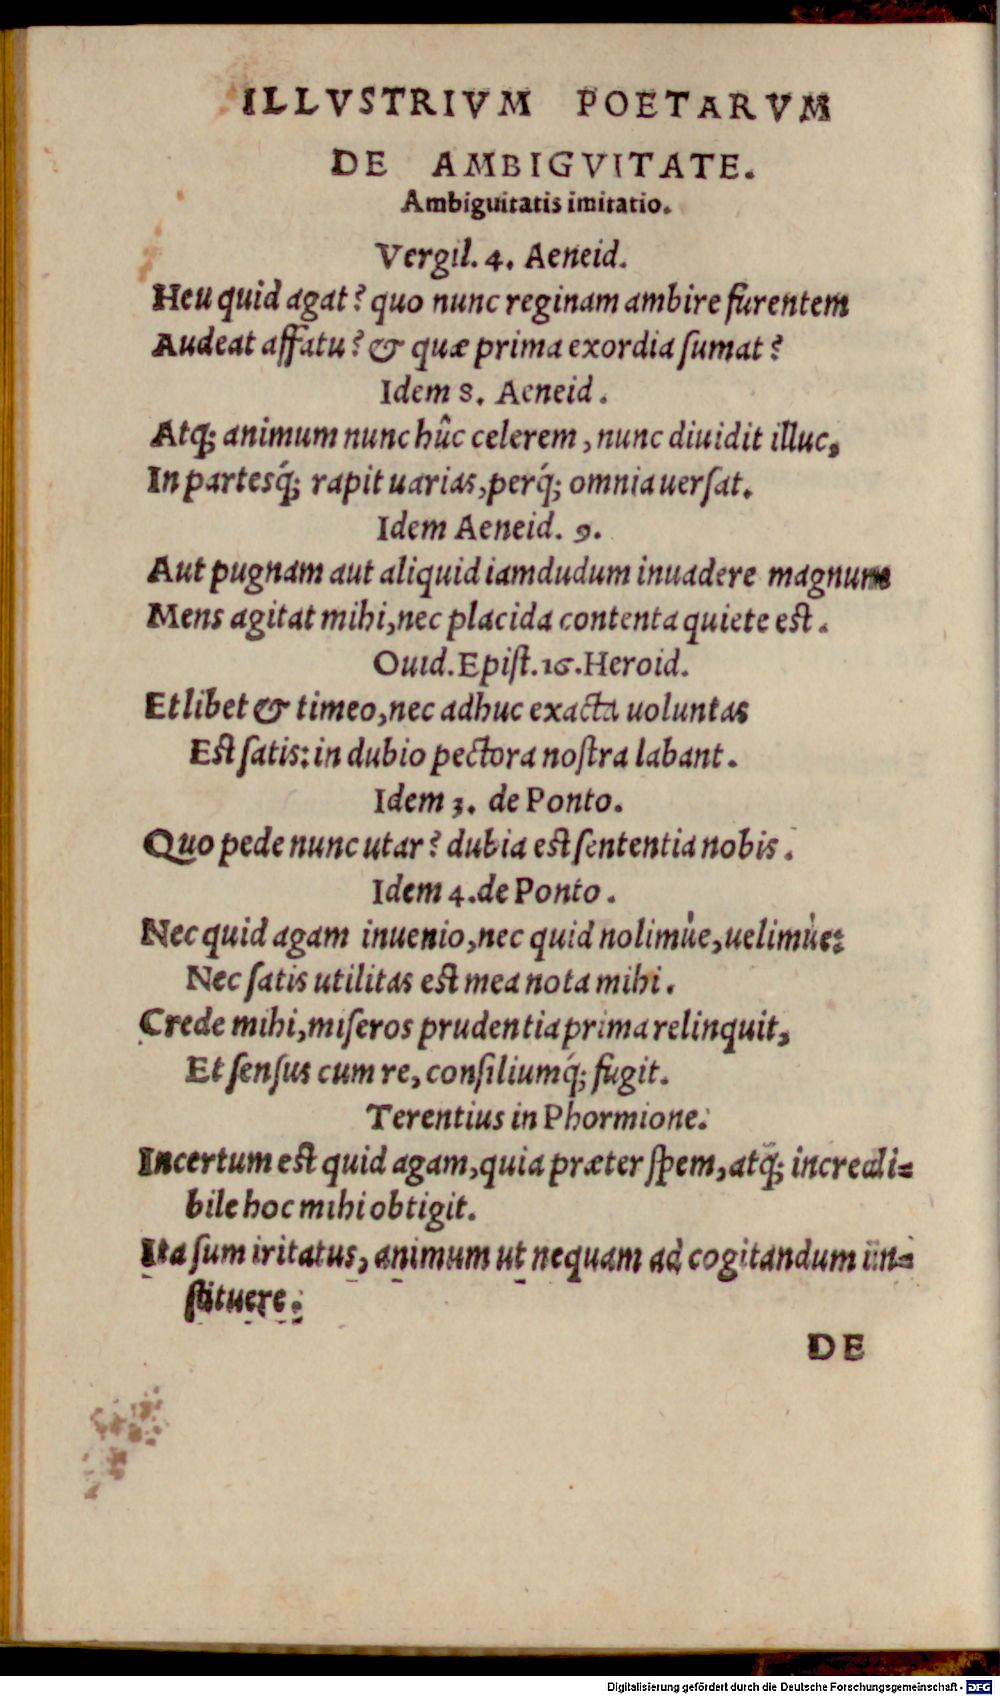 ILLVSTRIVM POETARVM
DE AMBIGVITATE.
Ambiguitatis imitatio.
Vergil. 4. Aeneid.
Heu quid agat? quo nunc reginam ambire furentem
Audeat affatu? & quæ prima exordia ſumat?
Idem 8. Aeneid.
Atq; animum nunc hûc celerem, nunc diuidit illuc,
In partesq́; rapit uarias, perq́; omnia uerſat.
Idem Aeneid. 9.
Aut pugnam aut aliquid iamdudum inuadere magnum
Mens agitat mihi, nec placida contenta quiete est.
Ouid. Epiſt. 16. Heroid.
Et libet & timeo, nec adhuc exacta uoluntas
Est ſatis: in dubio pectora noſtra labant.
Idem 3. de Ponto.
Quo pede nunc utar? dubia est ſententia nobis.
Idem 4. de Ponto.
Nec quid agam inuenio, nec quid nolimúe, uelimúe:
Nec ſatis utilitas est mea nota mihi.
Crede mihi, miſeros prudentia prima relinquit,
Et ſenſus cum re, conſiliumq́; fugit.
Terentius in Phormione.
Incertum est quid agam, quia præter ſpem, atq́; incredi=
bile hoc mihi obtigit.
Ita ſum iritatus, animum ut nequam ad cogitandum in=
ſtituere.
DE
Digitalisierung gefördert durch die Deutsche Forschungsgemeinschaft - DFG